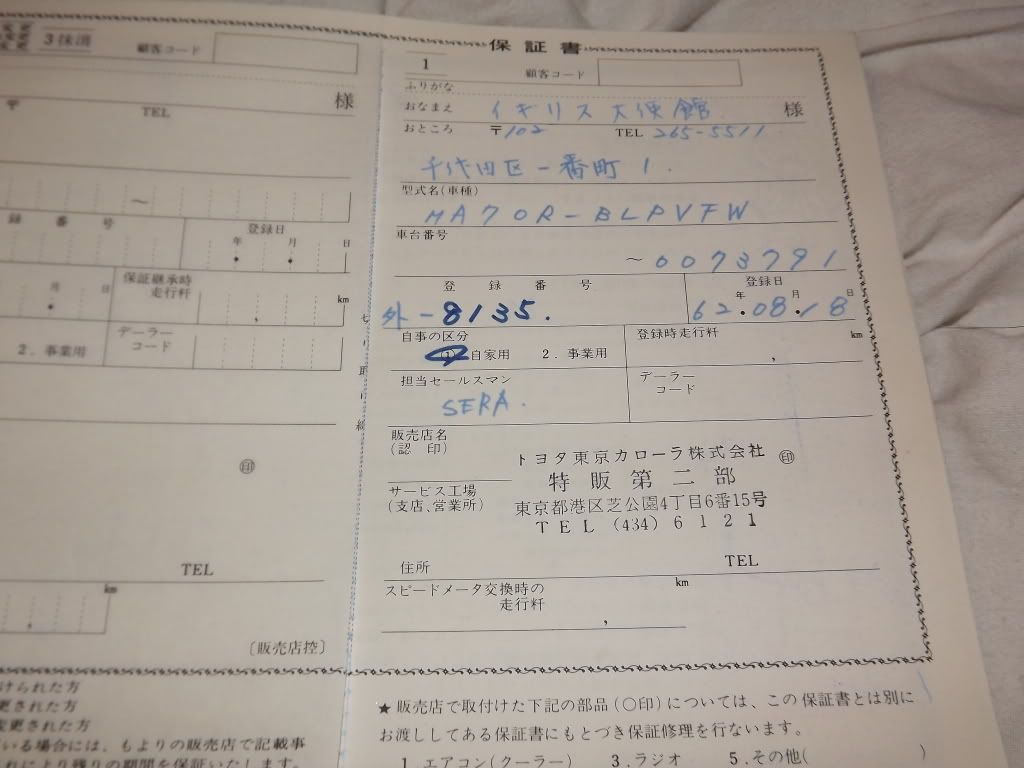 3 抹消
顧客コード
〒
TEL
様
～
録 番 号
登録日
年 月 日
保証継承時
走行粁
km
2. 事業用
デーラー
コード
切り取り線
印
TEL
km
〔販売店控〕
けられた方
更された方
変更された方
いる場合には、もよりの販売店で記載事
れにより残りの期間を保証いたします。
保証書
1
顧客コード
ふりがな
おなまえ イギリス大使館 様
おところ 〒102 TEL 265-5511
千代田区一番町1.
型式名(車種)
MA70R-BLPVFW
車台番号
～0073791
登録番号
登録日
年 月 日
外-8135.
62.08.18
自事の区分
① 自家用 2. 事業用
登録時走行粁
km
,
担当セールスマン
SERA.
デーラー
コード
販売店名
(認 印)
トヨタ東京カローラ株式会社 印
特販第二部
サービス工場
(支店、営業所)
東京都港区芝公園4丁目6番15号
TEL (434) 6121
住所
TEL
スピードメータ交換時の
走行粁
km
,
★販売店で取付けた下記の部品(○印)については、この保証書とは別に
お渡ししてある保証書にもとづき保証修理を行ないます。
1.エアコン(クーラー) 3.ラジオ 5.その他( )